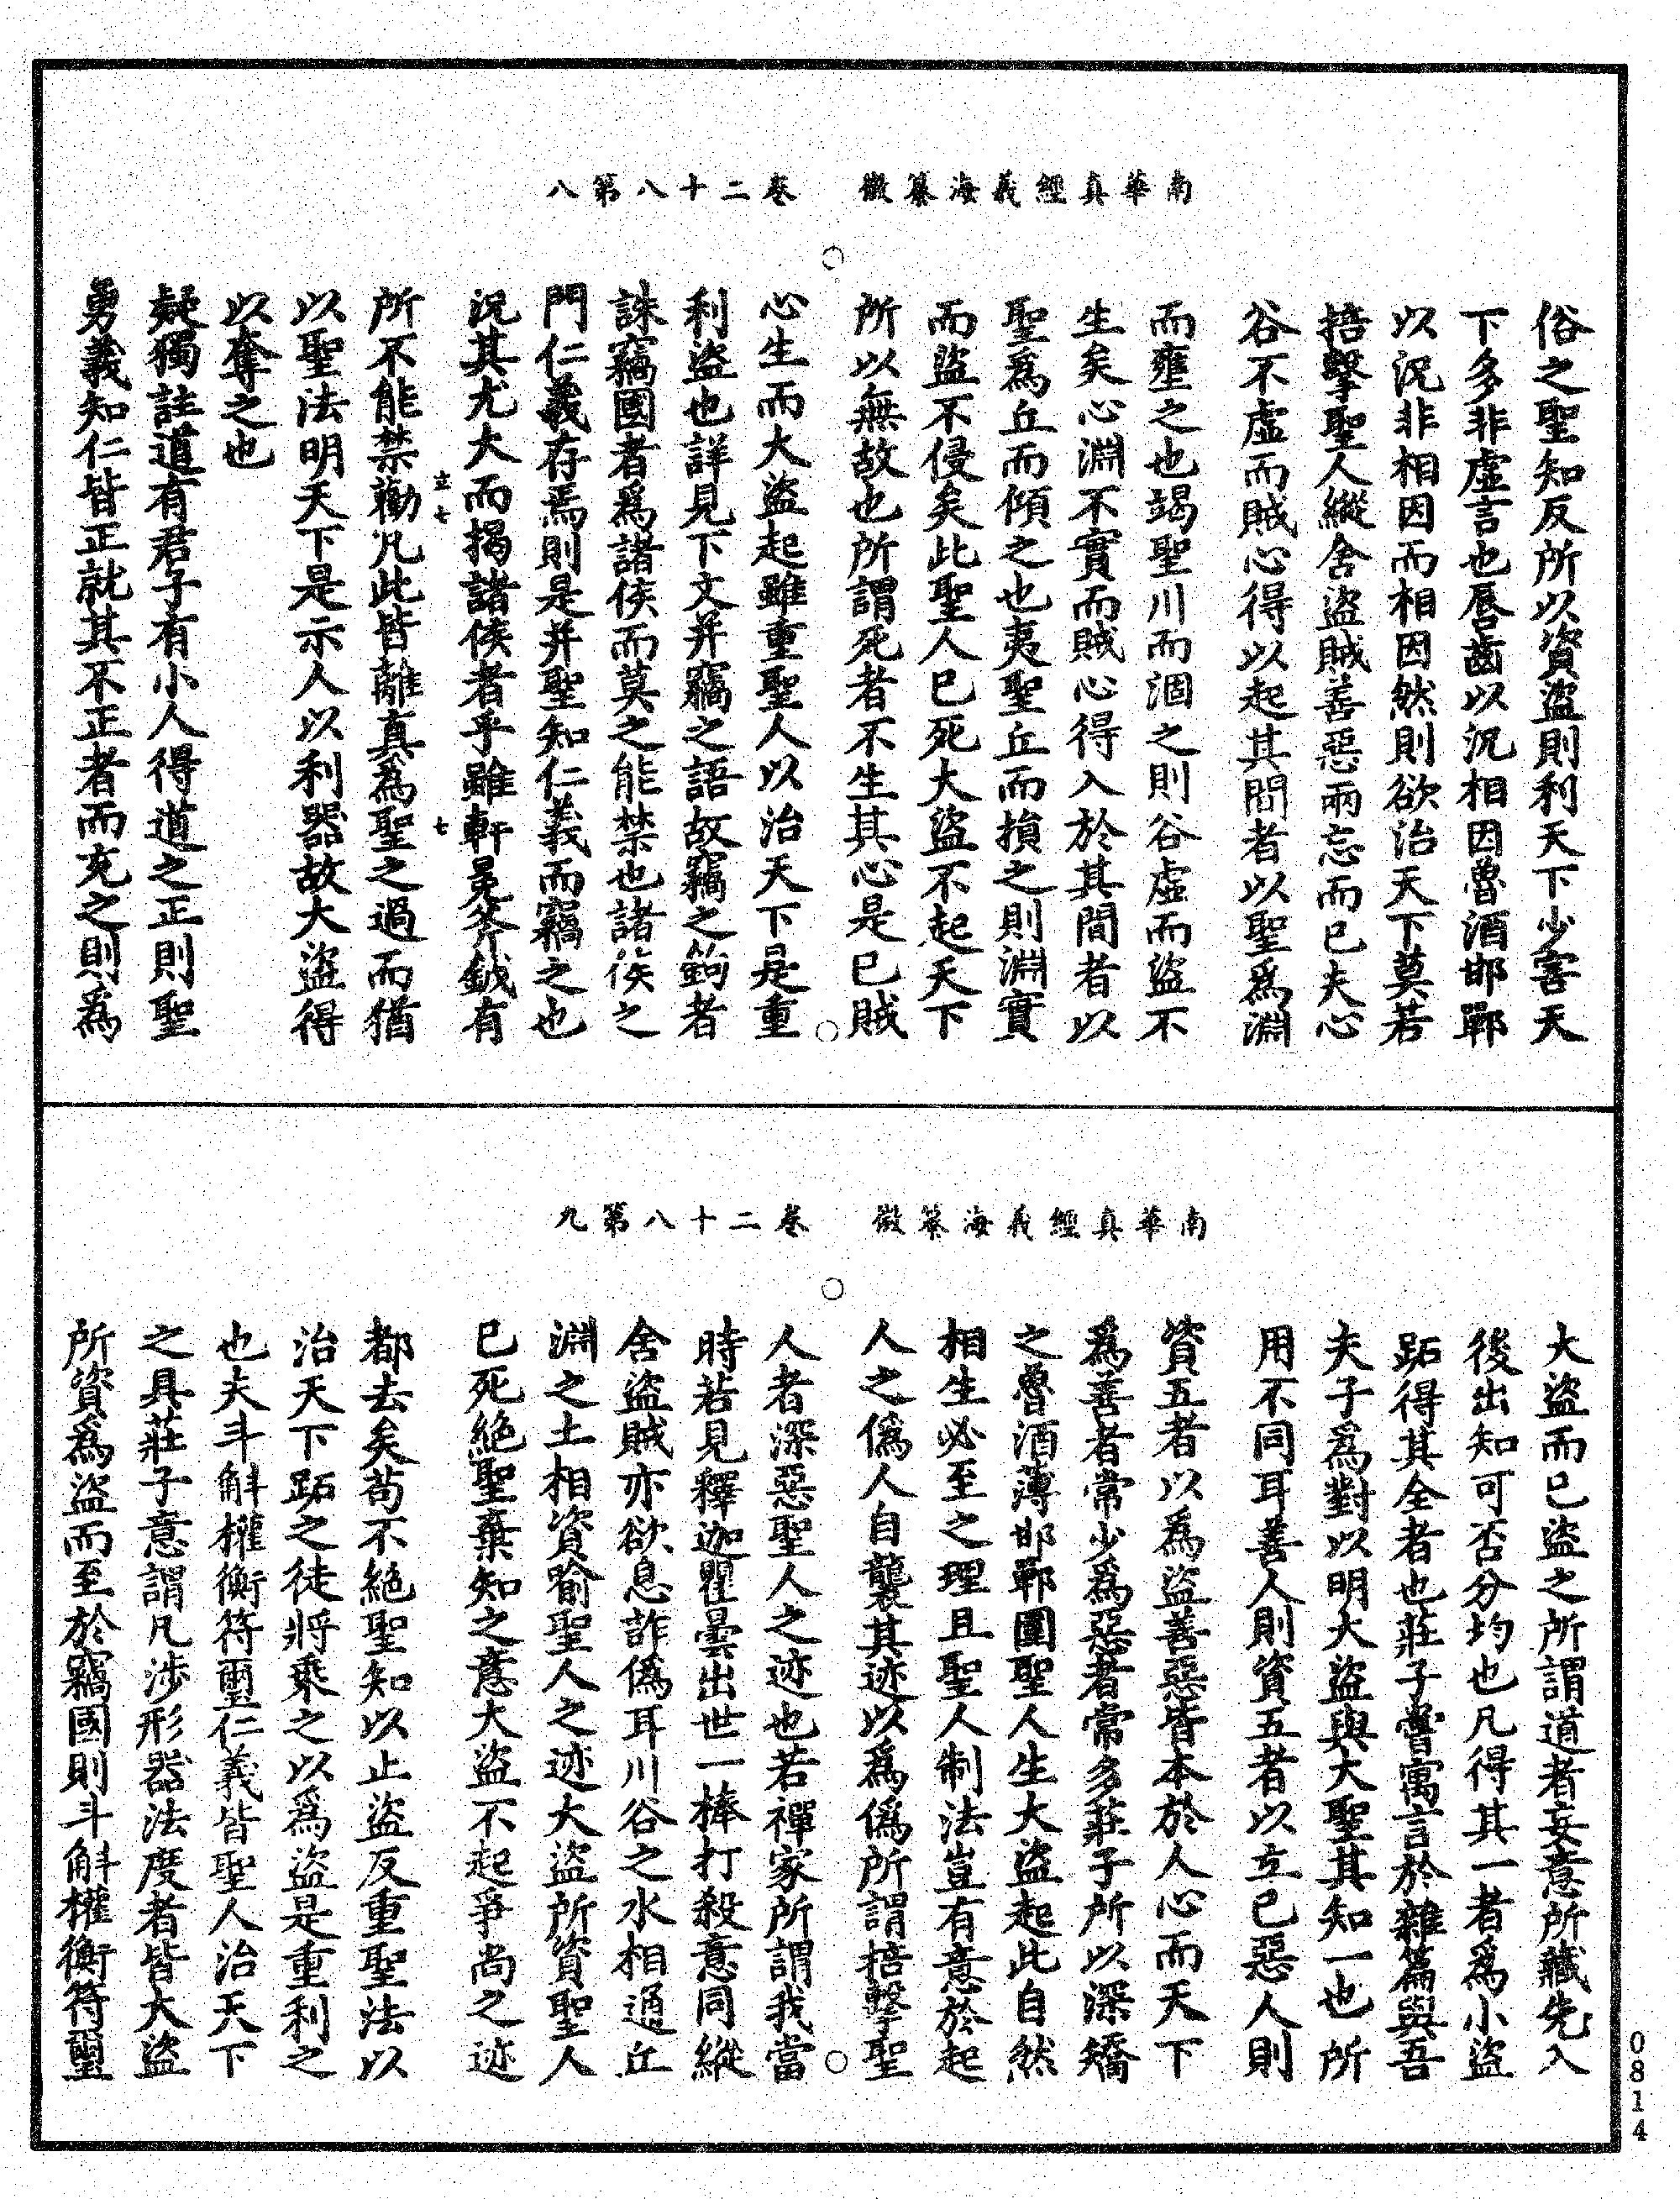 南華真經義海纂微　卷二十八第八
俗之聖知反所以資盜則利天下少害天
下多非虛言也唇齒以況相因魯酒邯鄲
以況非相因而相因然則欲治天下莫若
掊擊聖人縱舍盜賊善惡兩忘而已夫心
谷不虛而賊心得以起其間者以聖爲淵
而壅之也竭聖川而涸之則谷虛而盜不
生矣心淵不實而賊心得入於其間者以
聖爲丘而傾之也夷聖丘而損之則淵實
而盜不侵矣此聖人已死大盜不起天下
所以無故也所謂死者不生其心是已賊
心生而大盜起雖重聖人以治天下是重
利盜也詳見下文并竊之語故竊之鉤者
誅竊國者爲諸侯而莫之能禁也諸侯之
門仁義存焉則是并聖知仁義而竊之也
況其尤大而揭諸侯者乎雖軒冕斧鉞有
所不能禁勸凡此皆離真為聖之過而猶
以聖法明天下是示人以利器故大盜得
以奪之也
疑獨註道有君子有小人得道之正則聖
勇義知仁皆正就其不正者而充之則爲
立七
七
南華真經義海纂微　卷二十八第九
大盜而已盜之所謂道者妄意所藏先入
後出知可否分均也凡得其一者爲小盜
跖得其全者也莊子嘗寓言於雜篇與吾
夫子爲對以明大盜與大聖其知一也所
用不同耳善人則資五者以立已惡人則
資五者以爲盜善惡皆本於人心而天下
爲善者常少爲惡者常多莊子所以深矯
之魯酒薄邯鄲圍聖人生大盜起此自然
相生必至之理且聖人制法豈有意於起
人之僞人自襲其迹以爲僞所謂掊擊聖
人者深惡聖人之迹也若禪家所謂我當
時若見釋迦瞿曇出世一棒打殺意同縱
舍盜賊亦欲息詐僞耳川谷之水相通丘
淵之土相資喻聖人之迹大盜所資聖人
已死絕聖棄知之意大盜不起爭尚之迹
都去矣苟不絕聖知以止盜反重聖法以
治天下跖之徒將乘之以爲盜是重利之
也夫斗斛權衡符璽仁義皆聖人治天下
之具莊子意謂凡涉形器法度者皆大盜
所資爲盜而至於竊國則斗斛權衡符璽
0814